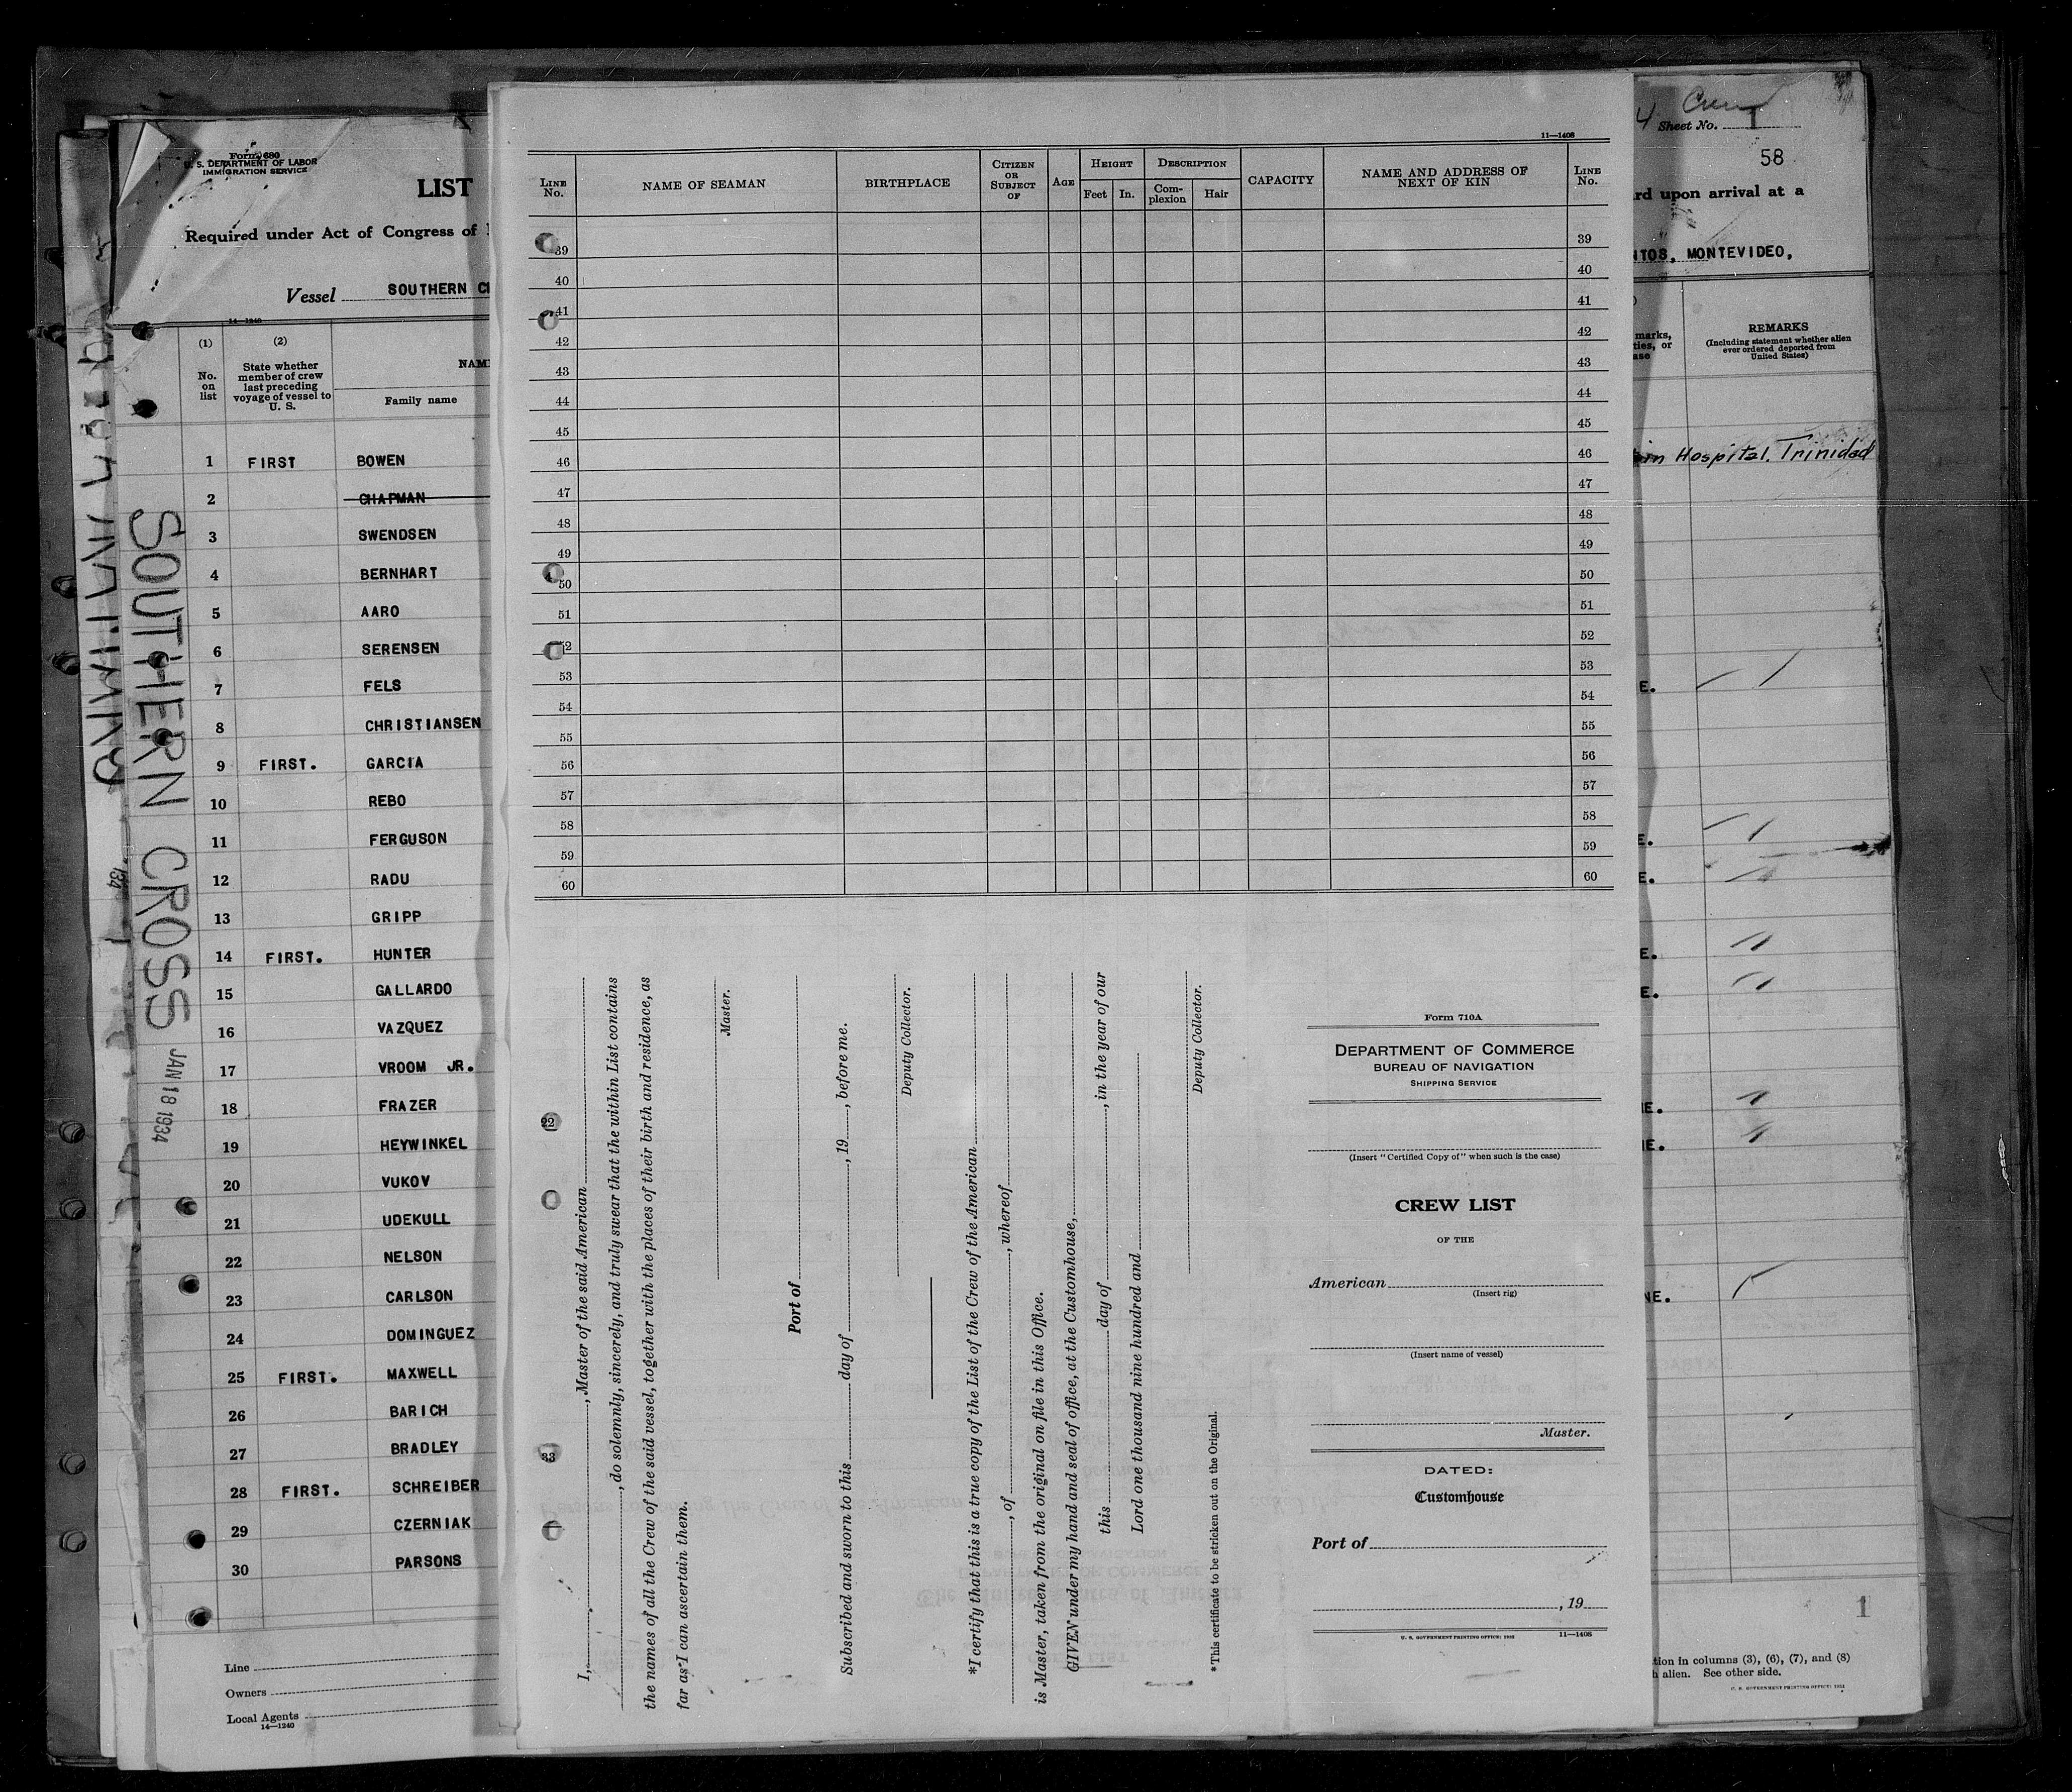 Form 680
U. S. DEPARTMENT OF LABOR
IMMIGRATION SERVICE
LIST
Required under Act of Congress of
Vessel SOUTHERN
14—1240
(1) (2)
No. on list
State whether member of crew last preceding voyage of vessel to U. S.
Family name
1 FIRST BOWEN
2 CHAPMAN
3 SWENDSEN
4 BERNHART
5 AARO
6 SERENSEN
7 FELS
8 CHRISTIANSEN
9 FIRST. GARCIA
10 REBO
11 FERGUSON
12 RADU
13 GRIPP
14 FIRST. HUNTER
15 GALLARDO
16 VAZQUEZ
17 VROOM JR.
18 FRAZER
19 HEYWINKEL
20 VUKOV
21 UDEKULL
22 NELSON
23 CARLSON
24 DOMINGUEZ
25 FIRST. MAXWELL
26 BARICH
27 BRADLEY
28 FIRST. SCHREIBER
29 CZERNIAK
30 PARSONS
Line
Owners
Local Agents
14—1240
SOUTHERN CROSS JAN 18 1934
11—1408
LINE No. NAME OF SEAMAN BIRTHPLACE CITIZEN OR SUBJECT OF AGE HEIGHT Feet In. DESCRIPTION Complexion Hair CAPACITY NAME AND ADDRESS OF NEXT OF KIN LINE No.
39 39
40 40
41 41
42 42
43 43
44 44
45 45
46 46
47 47
48 48
49 49
50 50
51 51
52 52
53 53
54 54
55 55
56 56
57 57
58 58
59 59
60 60
22
33
I, , Master of the said American
, do solemnly, sincerely, and truly swear that the within List contains
the names of all the Crew of the said vessel, together with the places of their birth and residence, as
far as I can ascertain them.
Master.
Port of
Subscribed and sworn to this day of , 19 , before me.
Deputy Collector.
*I certify that this is a true copy of the List of the Crew of the American
, of , whereof
is Master, taken from the original on file in this Office.
GIVEN under my hand and seal of office, at the Customhouse,
this day of , in the year of our
Lord one thousand nine hundred and
Deputy Collector.
*This certificate to be stricken out on the Original.
Form 710A
DEPARTMENT OF COMMERCE
BUREAU OF NAVIGATION
SHIPPING SERVICE
(Insert "Certified Copy of" when such is the case)
CREW LIST
OF THE
American
(Insert rig)
(Insert name of vessel)
Master.
DATED:
Customhouse
Port of
, 19
U. S. GOVERNMENT PRINTING OFFICE: 1932 11—1408
4 Crew
Sheet No. 1
58
upon arrival at a
MONTEVIDEO,
REMARKS
(Including statement whether alien
ever ordered deported from
United States)
Hospital. Trinidad
1
in columns (3), (6), (7), and (8)
alien. See other side.
U. S. GOVERNMENT PRINTING OFFICE: